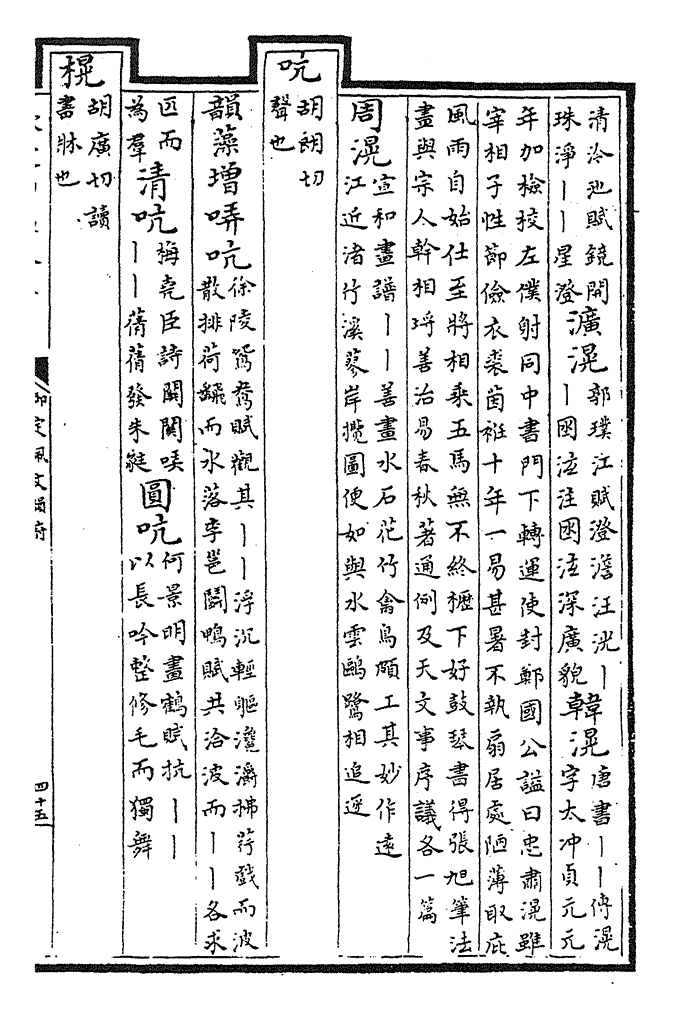 清泠池賦鏡開
珠淨丨丨星澄
瀇滉
郭璞江賦澄澹汪洸丨
丨囦泫注囦泫深廣貌
韓滉
唐書丨丨傳滉
字太冲貞元元
年加檢校左僕射同中書門下轉運使封鄭國公諡曰忠肅滉雖
宰相子性節儉衣裘茵袵十年一易甚暑不執扇居處陋薄取庇
風雨自始仕至將相乘五馬無不終櫪下好鼓琴書得張旭筆法
畫與宗人幹相埒善治易春秋著通例及天文事序議各一篇
周滉
宣和畫譜丨丨善畫水石花竹禽鳥頗工其妙作遠
江近渚竹溪蓼岸攬圖便如與水雲鷗鷺相追逐
吭
胡朗切
聲也
韻藻增
哢吭
徐陵鴛鴦賦觀其丨丨浮沉輕軀瀺灂拂荇戲而波
散排荷翻而水落李邕鬬鴨賦共洽波而丨丨各求
匹而
為羣
清吭
梅堯臣詩關關唉
丨丨蒨蒨發朱龇
圓吭
何景明畫鶴賦抗丨丨
以長吟整修毛而獨舞
榥
胡廣切讀
書牀也
御定佩文韻府
四十五